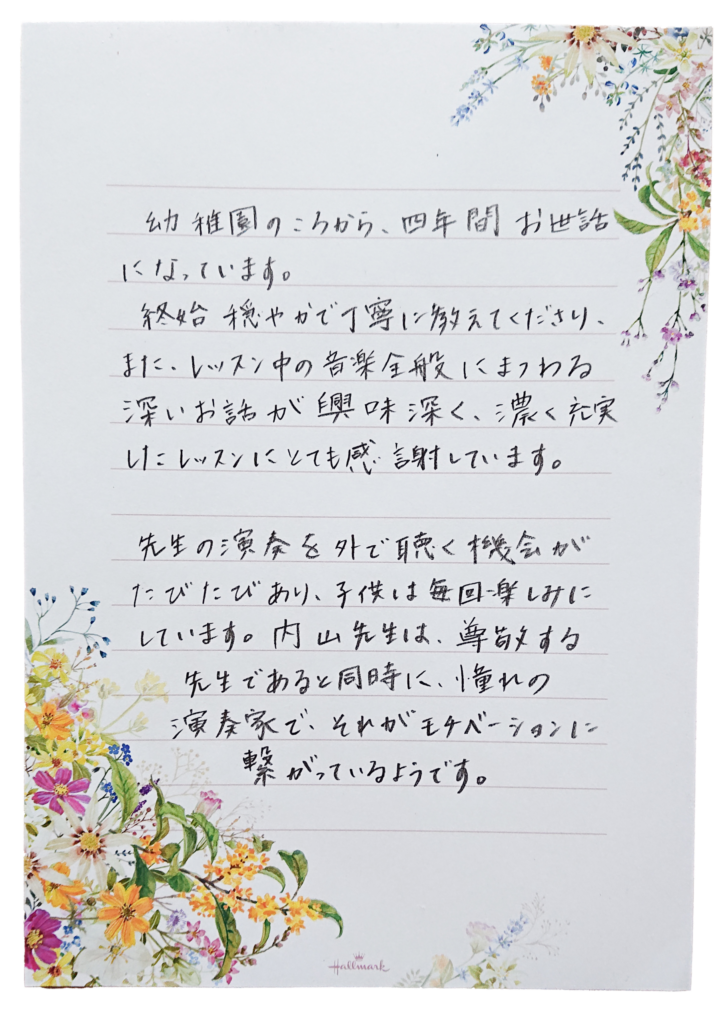 幼稚園のころから、四年間 お世話
になっています。
終始 穏やかで丁寧に教えてくださり、
また、レッスン中の音楽全般にまつわる
深いお話が興味深く、濃く充実
したレッスンにとても感謝しています。
先生の演奏を外で聴く機会が
たびたびあり、子供は毎回楽しみに
しています。内山先生は、尊敬する
先生であると同時に、憧れの
演奏家で、それがモチベーションに
繋がっているようです。
Hallmark